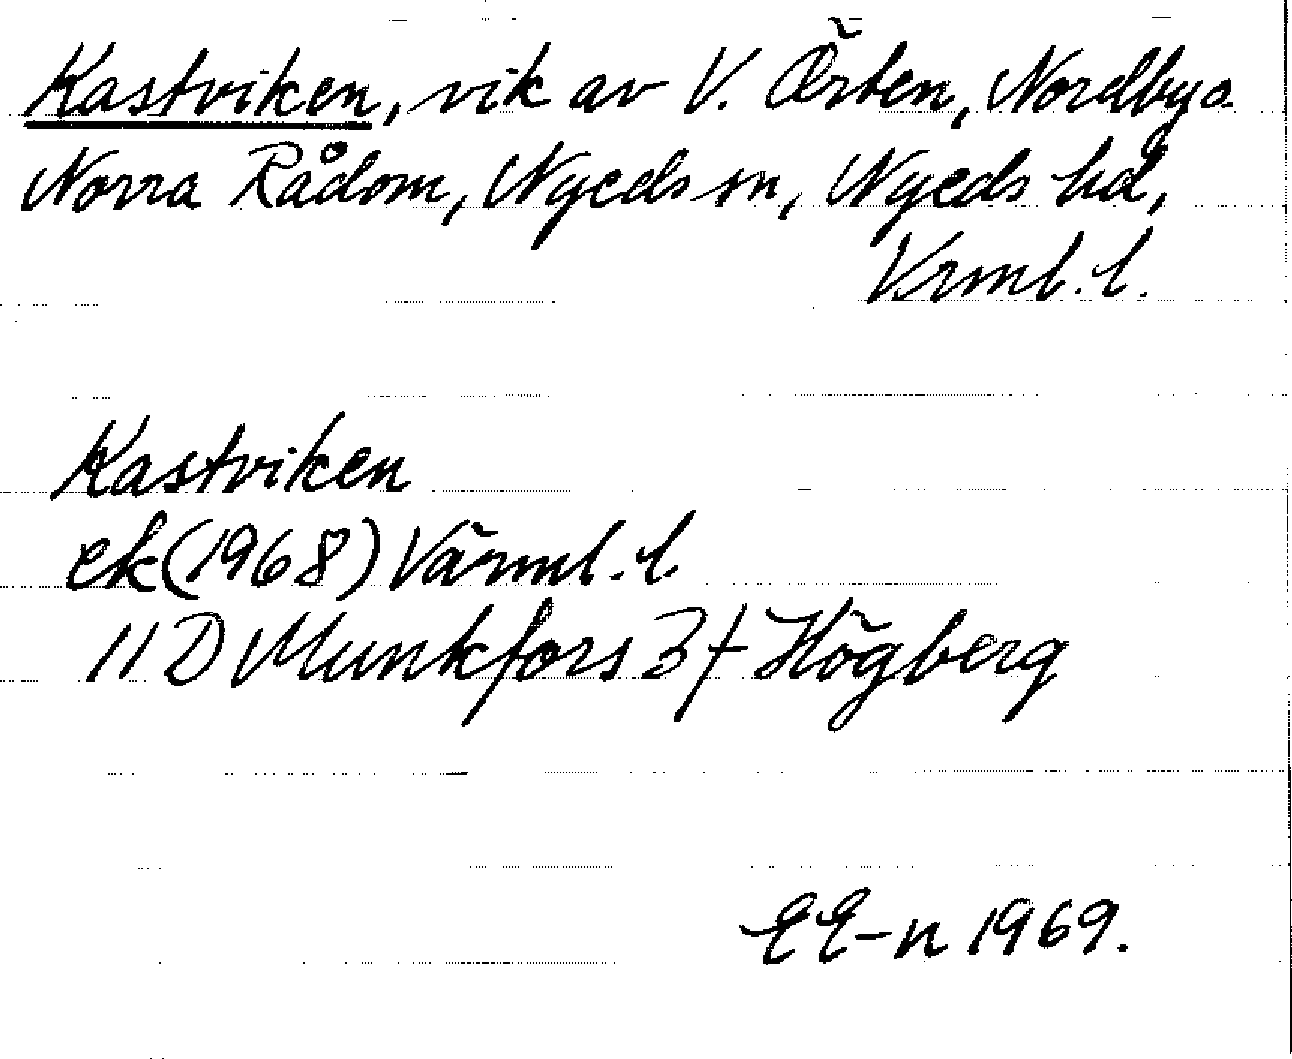 Kastviken, vik av V. Örten, Nordby o.
Norra Rådom, Nyeds sn, Nyeds hd,
Vrml. l.
Kastviken
ek (1968) Värml. l.
11 D Munkfors 3 f Högberg
EE-n 1969.